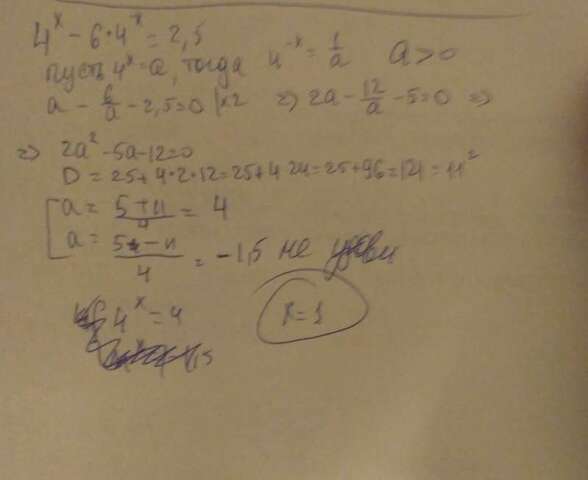 4^x - 6·4^-x = 2,5
пусть 4^x = a, тогда 4^-x = 1/a a > 0
a - 6/a - 2,5 = 0 |×2 => 2a - 12/a - 5 = 0 =>
=> 2a² - 5a - 12 = 0
D = 25 + 4·2·12 = 25 + 4·24 = 25 + 96 = 121 = 11²
[ a = (5 + 11)/4 = 4
a = (5 - 11)/4 = -1,5 не
4^x = 4 x = 1